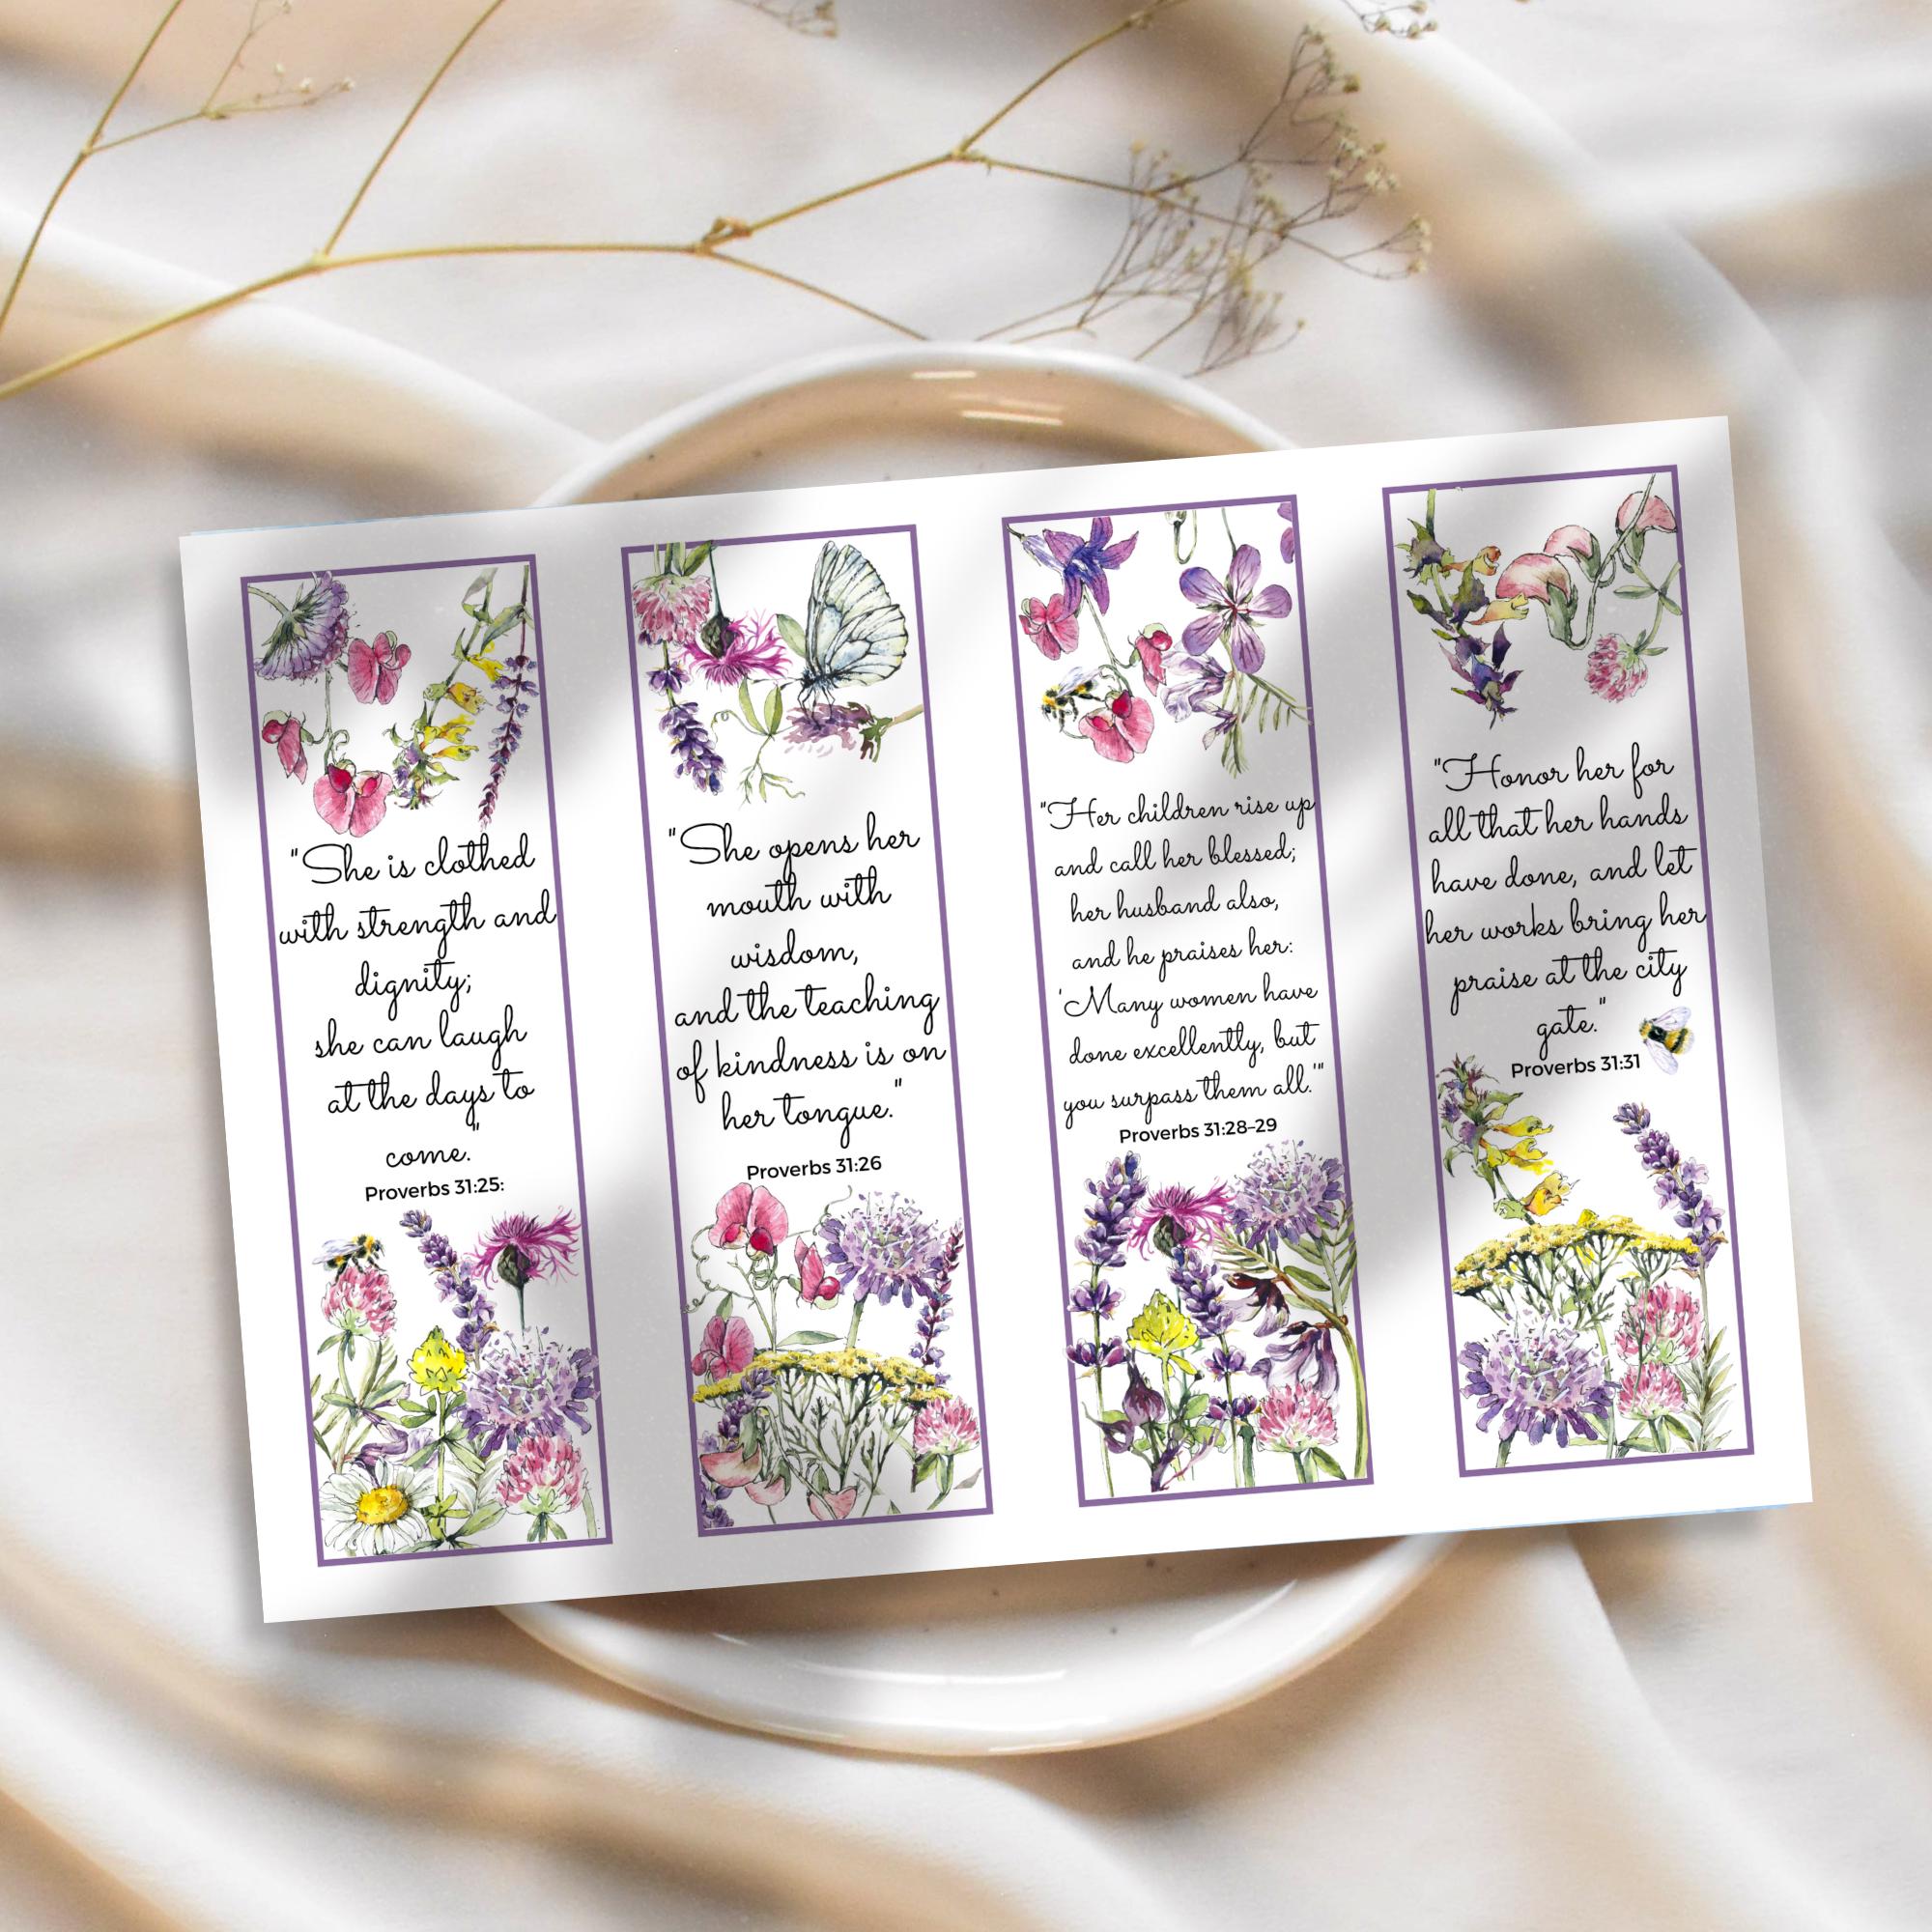 "She is clothed
with strength and
dignity;
she can laugh
at the days to
come."
Proverbs 31:25:
"She opens her
mouth with
wisdom,
and the teaching
of kindness is on
her tongue."
Proverbs 31:26
"Her children rise up
and call her blessed;
her husband also,
and he praises her:
'Many women have
done excellently, but
you surpass them all.'"
Proverbs 31:28–29
"Honor her for
all that her hands
have done, and let
her works bring her
praise at the city
gate."
Proverbs 31:31